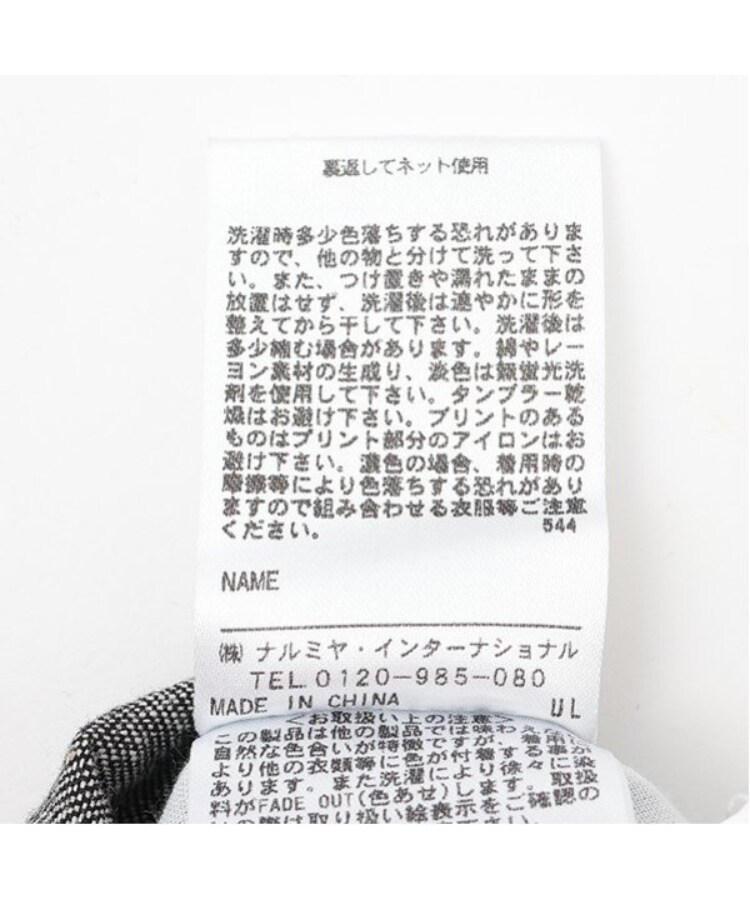 裏返してネット使用
洗濯時多少色落ちする恐れがありま
すので、他の物と分けて洗って下さ
い。また、つけ置きや濡れたままの
放置はせず、洗濯後は速やかに形を
整えてから干して下さい。洗濯後は
多少縮む場合があります。綿やレー
ヨン素材の生成り、淡色は無蛍光洗
剤を使用して下さい。タンブラー乾
燥はお避け下さい。プリントのある
ものはプリント部分のアイロンはお
避け下さい。濃色の場合、着用時の
摩擦等により色落ちする恐れがあり
ますので組み合わせる衣服等ご注意
ください。 544
NAME
㈱ ナルミヤ・インターナショナル
TEL.0120-985-080
MADE IN CHINA UL
<お取扱い上の注意>
この製品は他の製品では味わえな
自然な色合いが特徴ですが、着用
より他の衣類等に色が付着する事が
あります。また洗濯により徐々に染
料がFADE OUT(色あせ)します。取扱
の際は取り扱い絵表示をご確認の